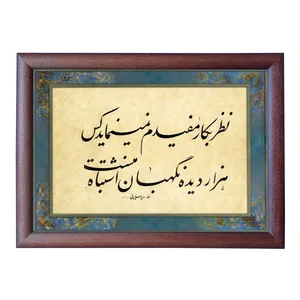 نظر بکار مفیدم نمینماید کس
هزار دیده نگهبان اشتباه منست